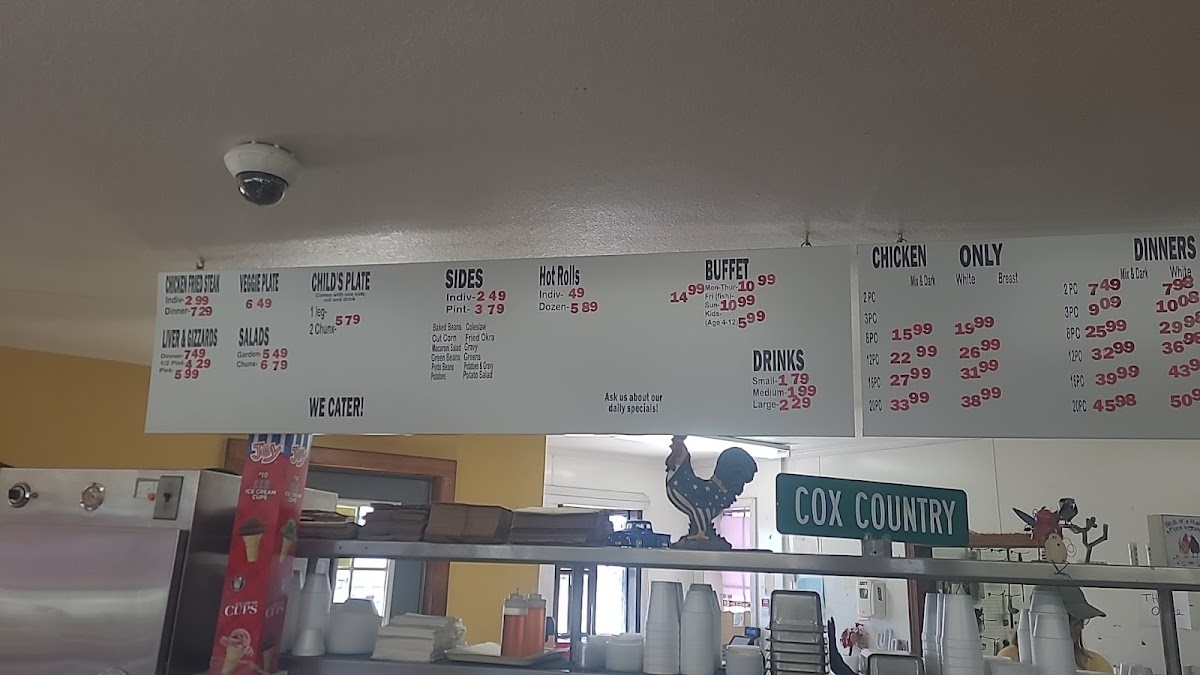 CHICKEN FRIED STEAK
Indiv- 2 99
Dinner- 7 29
LIVER & GIZZARDS
Dinner- 7 49
1/2 Pint- 4 29
Pint- 5 99
VEGGIE PLATE
6 49
SALADS
Garden- 5 49
Chunx- 6 79
CHILD'S PLATE
Comes with one side,
roll and drink
1 leg-
2 Chunx- 5 79
WE CATER!
SIDES
Indiv- 2 49
Pint- 3 79
Baked Beans Coleslaw
Cut Corn Fried Okra
Macaroni Salad Gravy
Green Beans Greens
Pinto Beans Potatoes & Gravy
Potatoes Potato Salad
Hot Rolls
Indiv- 49
Dozen- 5 89
Ask us about our
daily specials!
BUFFET
Mon-Thur- 10 99
14 99 Fri (fish)-
Sun- 10 99
Kids-
(Age 4-12) 5 99
DRINKS
Small- 1 79
Medium- 1 99
Large- 2 29
CHICKEN ONLY
Mix & Dark White Breast
2 PC
3PC
8PC 15 99 19 99
12PC 22 99 26 99
16PC 27 99 31 99
20PC 33 99 38 99
DINNERS
Mix & Dark White
2 PC 7 49 7 98
3PC 9 09 10 98
8PC 25 99 29 98
12PC 32 99 36 98
16PC 39 99 43 9
20PC 45 98 50 9
Joy
ICE CREAM
CUPS
CUPS
COX COUNTRY